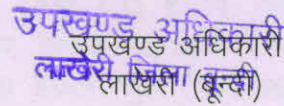 उपखण्ड अधिकारी
लाखेरी जिला बून्दी
उपखण्ड अधिकारी
लाखेरी (बून्दी)